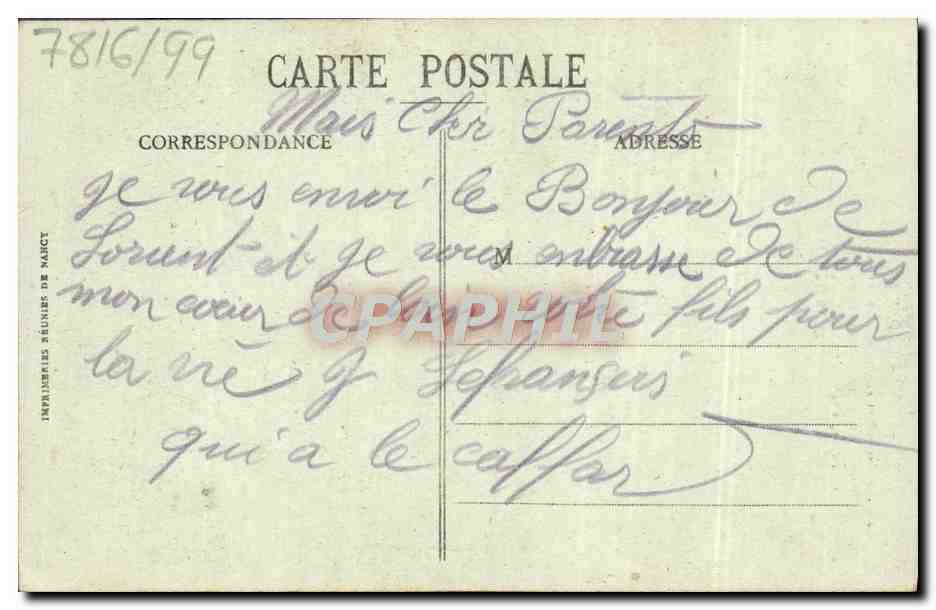 7816/99
CARTE POSTALE
Mais Cher Parents
CORRESPONDANCE
ADRESSE
je vous envoi le Bonjour de
Lorient et je vous enbrasse de tous
M
mon cœur de votre fils pour
la vie J Lefrançois
qui a le caffar
IMPRIMERIES RÉUNIES DE NANCY
CPAPHIL